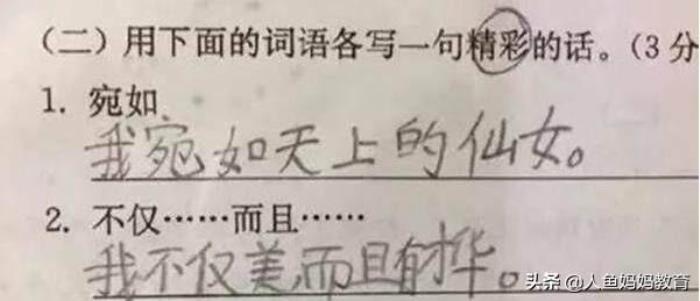 （二）用下面的词语各写一句精彩的话。（3分
1. 宛如
我宛如天上的仙女。
2. 不仅……而且……
我不仅美,而且有才华。
头条 @人鱼妈妈教育